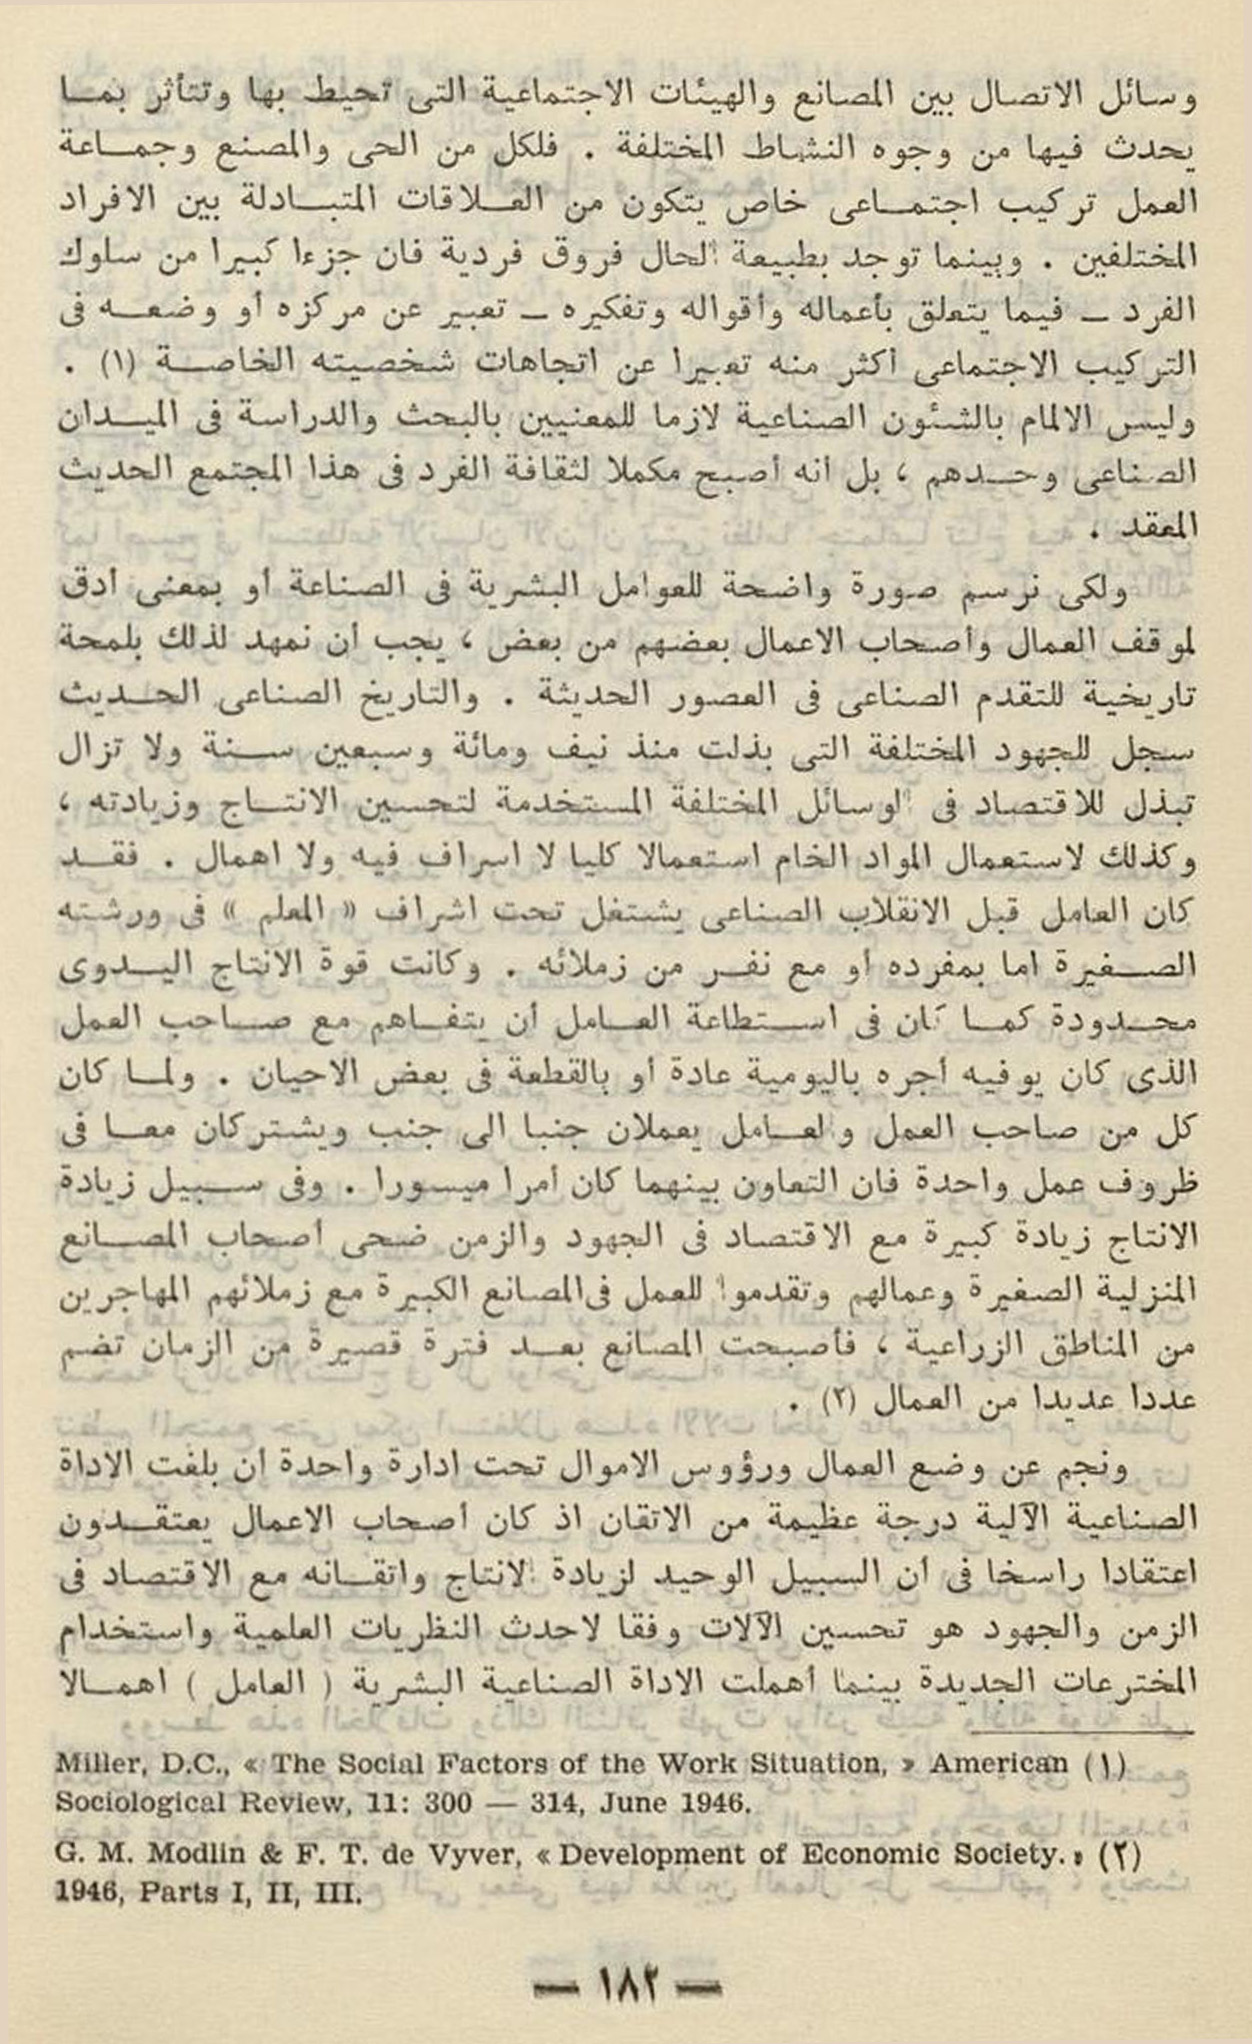 وسائل الاتصال بين المصانع والهيئات الاجتماعية التى تحيط بها وتتأثر بما
يحدث فيها من وجوه النشاط المختلفة . فلكل من الحى والمصنع وجماعة
العمل تركيب اجتماعى خاص يتكون من العلاقات المتبادلة بين الافراد
المختلفين . وبينما توجد بطبيعة الحال فروق فردية فان جزءا كبيرا من سلوك
الفرد ــ فيما يتعلق بأعماله وأقواله وتفكيره ــ تعبير عن مركزه أو وضعه فى
التركيب الاجتماعى أكثر منه تعبيرا عن اتجاهات شخصيته الخاصة (١) .
وليس الالمام بالشئون الصناعية لازما للمعنيين بالبحث والدراسة فى الميدان
الصناعى وحدهم ، بل أنه أصبح مكملا لثقافة الفرد فى هذا المجتمع الحديث
المعقد .
ولكى نرسم صورة واضحة للعوامل البشرية فى الصناعة أو بمعنى أدق
لموقف العمال وأصحاب الاعمال بعضهم من بعض ، يجب أن نمهد لذلك بلمحة
تاريخية للتقدم الصناعى فى العصور الحديثة . والتاريخ الصناعى الحديث
سجل للجهود المختلفة التى بذلت منذ نيف ومائة وسبعين سنة ولا تزال
تبذل للاقتصاد فى الوسائل المختلفة المستخدمة لتحسين الانتاج وزيادته ،
وكذلك لاستعمال المواد الخام استعمالا كليا لا اسراف فيه ولا اهمال . فقد
كان العامل قبل الانقلاب الصناعى يشتغل تحت اشراف « المعلم » فى ورشته
الصغيرة اما بمفرده أو مع نفر من زملائه . وكانت قوة الانتاج اليدوى
محدودة كما كان فى استطاعة العامل أن يتفاهم مع صاحب العمل
الذى كان يوفيه أجره باليومية عادة أو بالقطعة فى بعض الاحيان . ولما كان
كل من صاحب العمل والعامل يعملان جنبا الى جنب ويشتركان معا فى
ظروف عمل واحدة فان التعاون بينهما كان أمرا ميسورا . وفى سبيل زيادة
الانتاج زيادة كبيرة مع الاقتصاد فى الجهود والزمن ضحى أصحاب المصانع
المنزلية الصغيرة وعمالهم وتقدموا للعمل فى المصانع الكبيرة مع زملائهم المهاجرين
من المناطق الزراعية ، فأصبحت المصانع بعد فترة قصيرة من الزمان تضم
عددا عديدا من العمال (٢) .
ونجم عن وضع العمال ورؤوس الاموال تحت ادارة واحدة أن بلغت الاداة
الصناعية الآلية درجة عظيمة من الاتقان اذ كان أصحاب الاعمال يعتقدون
اعتقادا راسخا فى أن السبيل الوحيد لزيادة الانتاج واتقانه مع الاقتصاد فى
الزمن والجهود هو تحسين الآلات وفقا لاحدث النظريات العلمية واستخدام
المخترعات الجديدة بينما أهملت الاداة الصناعية البشرية ( العامل ) اهمالا
Miller, D.C., « The Social Factors of the Work Situation, » American (١)
Sociological Review, 11: 300 — 314, June 1946.
G. M. Modlin & F. T. de Vyver, « Development of Economic Society. » (٢)
1946, Parts I, II, III.
— ١٨٢ —